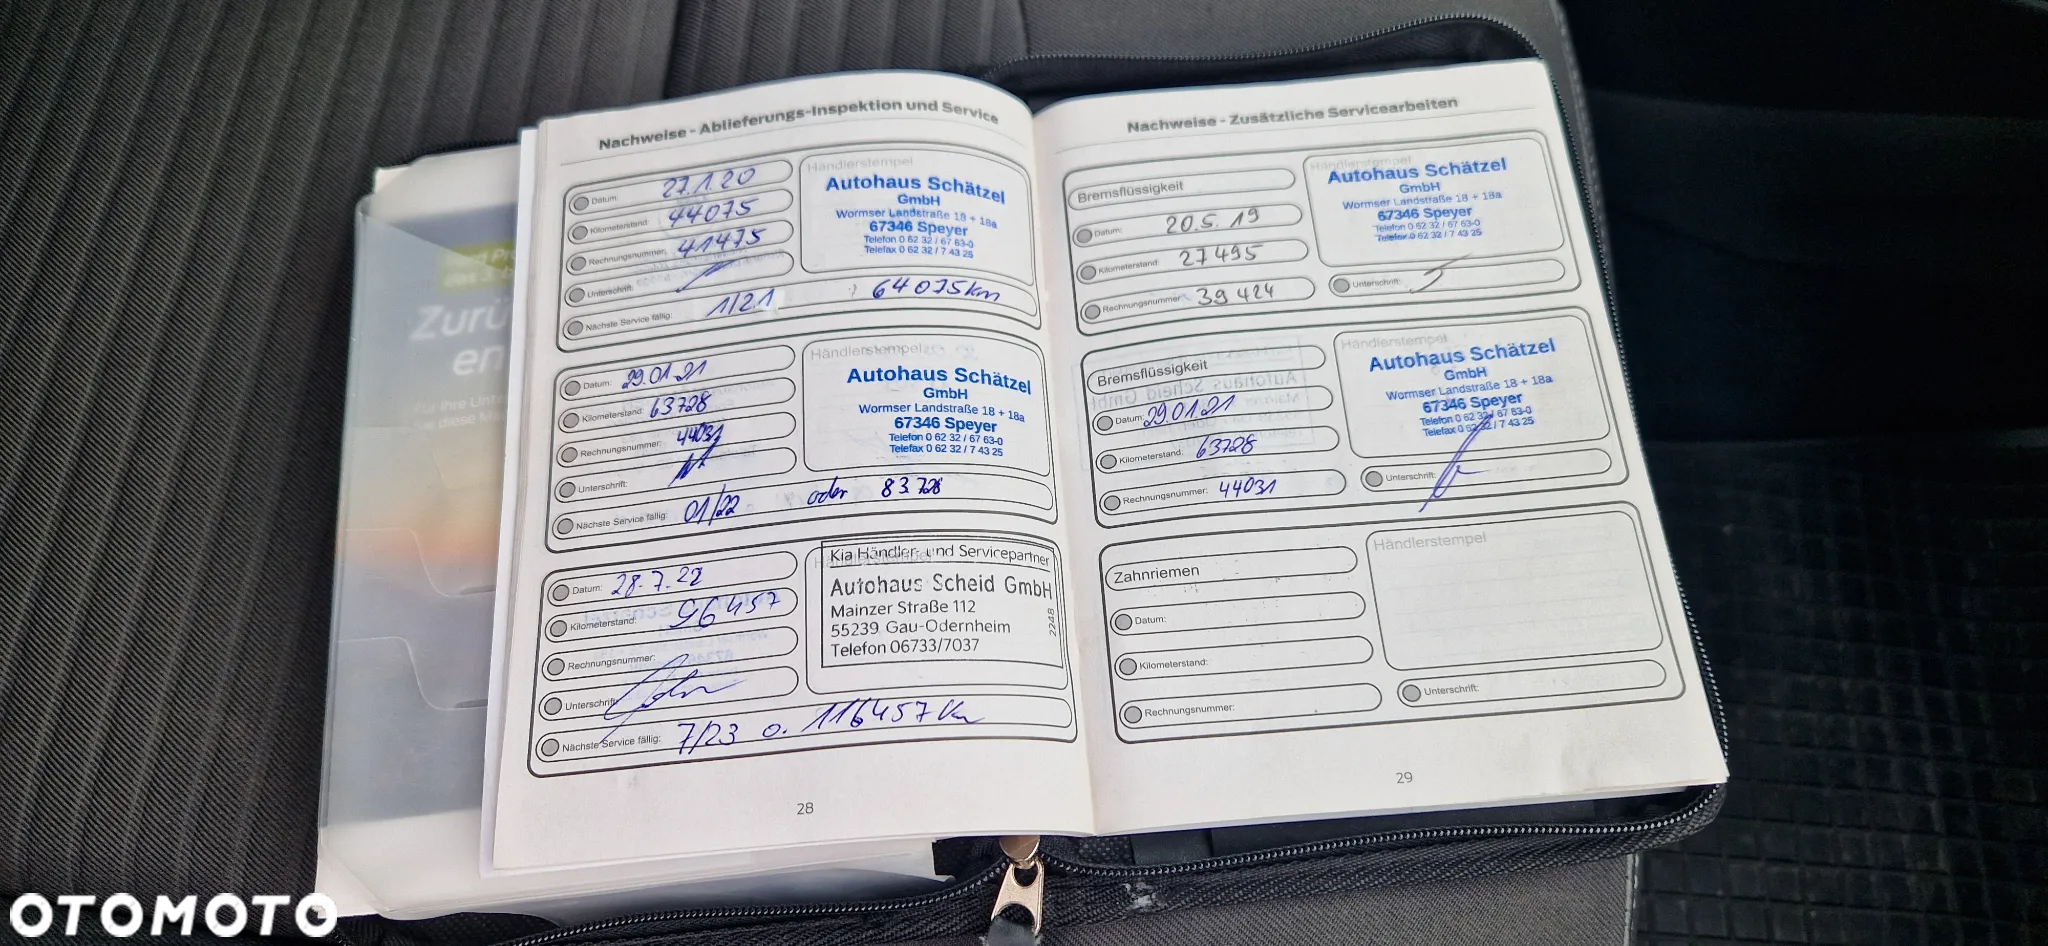 Nachweise - Ablieferungs-Inspektion und Service
Datum: 27.1.20
Kilometerstand: 44075
Rechnungsnummer: 41475
Unterschrift:
Nächste Service fällig: 1/21 64075km
Händlerstempel
Autohaus Schätzel
GmbH
Wormser Landstraße 18 + 18a
67346 Speyer
Telefon 0 62 32 / 67 63-0
Telefax 0 62 32 / 7 43 25
Datum: 29.01.21
Kilometerstand: 63728
Rechnungsnummer: 44031
Unterschrift:
Nächste Service fällig: 01/22 oder 83728
Händlerstempel
Autohaus Schätzel
GmbH
Wormser Landstraße 18 + 18a
67346 Speyer
Telefon 0 62 32 / 67 63-0
Telefax 0 62 32 / 7 43 25
Datum: 28.7.22
Kilometerstand: 96457
Rechnungsnummer:
Unterschrift:
Nächste Service fällig: 7/23 o. 116457 km
Händlerstempel
Kia Händler- und Servicepartner
Autohaus Scheid GmbH
Mainzer Straße 112
55239 Gau-Odernheim
Telefon 06733/7037
2248
28
Nachweise - Zusätzliche Servicearbeiten
Bremsflüssigkeit
Datum: 20.5.19
Kilometerstand: 27495
Rechnungsnummer: 39424
Händlerstempel
Autohaus Schätzel
GmbH
Wormser Landstraße 18 + 18a
67346 Speyer
Telefon 0 62 32 / 67 63-0
Telefax 0 62 32 / 7 43 25
Unterschrift:
Bremsflüssigkeit
Datum: 29.01.21
Kilometerstand: 63728
Rechnungsnummer: 44031
Händlerstempel
Autohaus Schätzel
GmbH
Wormser Landstraße 18 + 18a
67346 Speyer
Telefon 0 62 32 / 67 63-0
Telefax 0 62 32 / 7 43 25
Unterschrift:
Zahnriemen
Datum:
Kilometerstand:
Rechnungsnummer:
Händlerstempel
Unterschrift:
29
Zurü
en
OTOMOTO